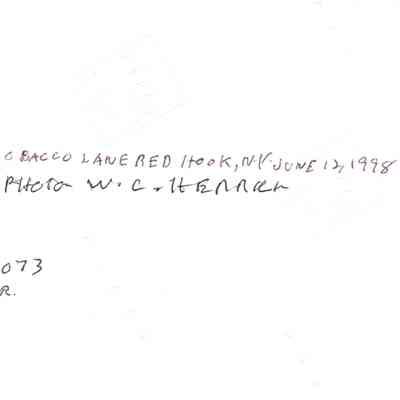 OBACCO LANE RED HOOK, N.Y. JUNE 12, 1998
PHOTO W. C. HERRICK
073
R.